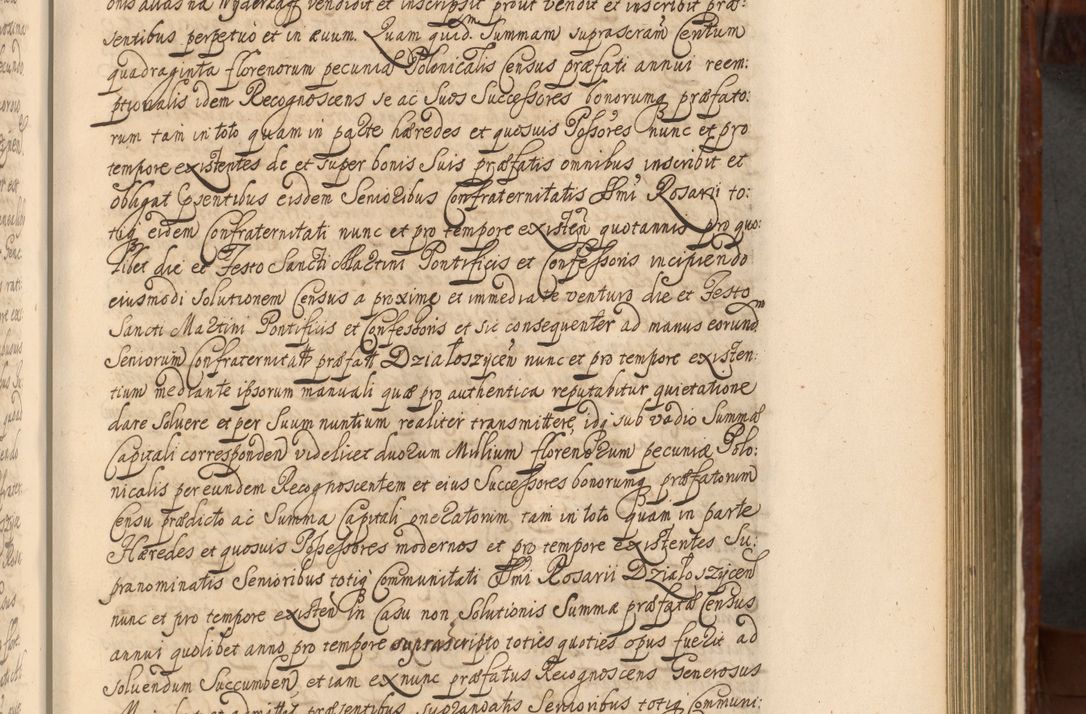 onis alias na Wyderkaff vendidit et inscripsit prout vendit et inscribit præ:
sentibus perpetuo et in ævum. Quam quid.m Summam suprascram Centum
quadraginta florenorum pecuniæ Polonicalis Census præfati annui reem:
ptionalis idem Recognoscens se ac Suos Successores bonorumq præfato:
rum tam in toto quam in parte hæredes et quosuis Possores nunc et pro
tempore existentes de et super bonis Suis præfatis omnibus inscribit et
obligat Psentibus eisdem Senioribus Confraternitatis SSmi Rosarii to:
tiq eidem Confraternitati nunc et pro tempore existen quotannis pro quo:
libet die et Festo Sancti Martini Pontificis et Confessoris incipiendo
eiusmodi Solutionem Census a proxime et immediate venturo die et Festo
Sancti Martini Pontificis et Confessoris et sic consequenter ad manus eorundm
Seniorum Confraternitatt præfatt Działoszycen nunc et pro tempore existen:
tium mediante ipsorum manuali quæ pro authentica reputabitur quietatione
dare Soluere et per Suum nuntium realiter transmittere, idq sub vadio Summæ
Capitali corresponden videlicet duorum Millium florenorum pecuniæ Polo:
nicalis per eundem Recognoscentem et eius Successores bonorumq præfatorum
Censu prædicto ac Summa Capitali oneratorum tam in toto quam in parte
Hæredes et quosuis Possessores modernos et pro tempore existentes Su:
pranominatis Senioribus totiq Communitati SSmi Rosarii Działoszycen
nunc et pro tempore existen in Casu non Solutionis Summæ præfatæ Census
annui quolibet anno pro tempore suprascripto toties quoties opus fuerit ad
soluendum Succumben et iam ex nunc præfatus Recognoscens Generosus
præsentibus Senioribus totiq Communi: